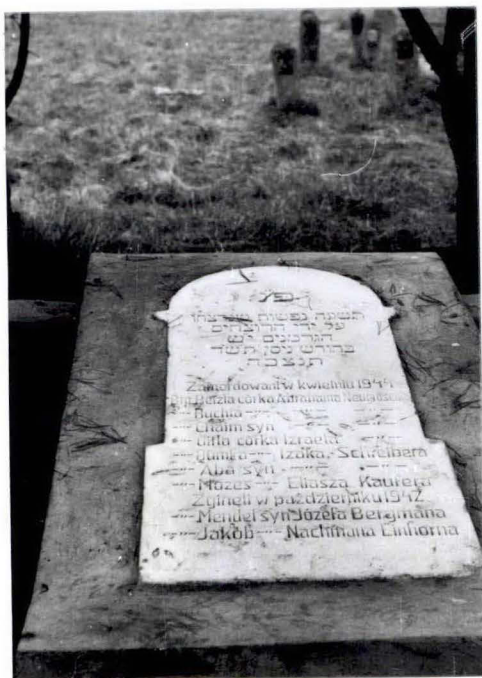 פ״נ
תשעה נפשות שנרצחו
על ידי הרוצחים
הגרמנים יש
בחודש ניסן תש״ד
תנצבה
Zamordowani w kwietniu 1944
córka Abrahama
Ruchla
Chaim syn
Gitla córka Izraela
Izaka Schreibera
Aba syn
Mozes Eliasza Kaufera
Zginęli w październiku 1942
Mendel syn Józefa Bergmana
Jakób Nachmana Einhorna